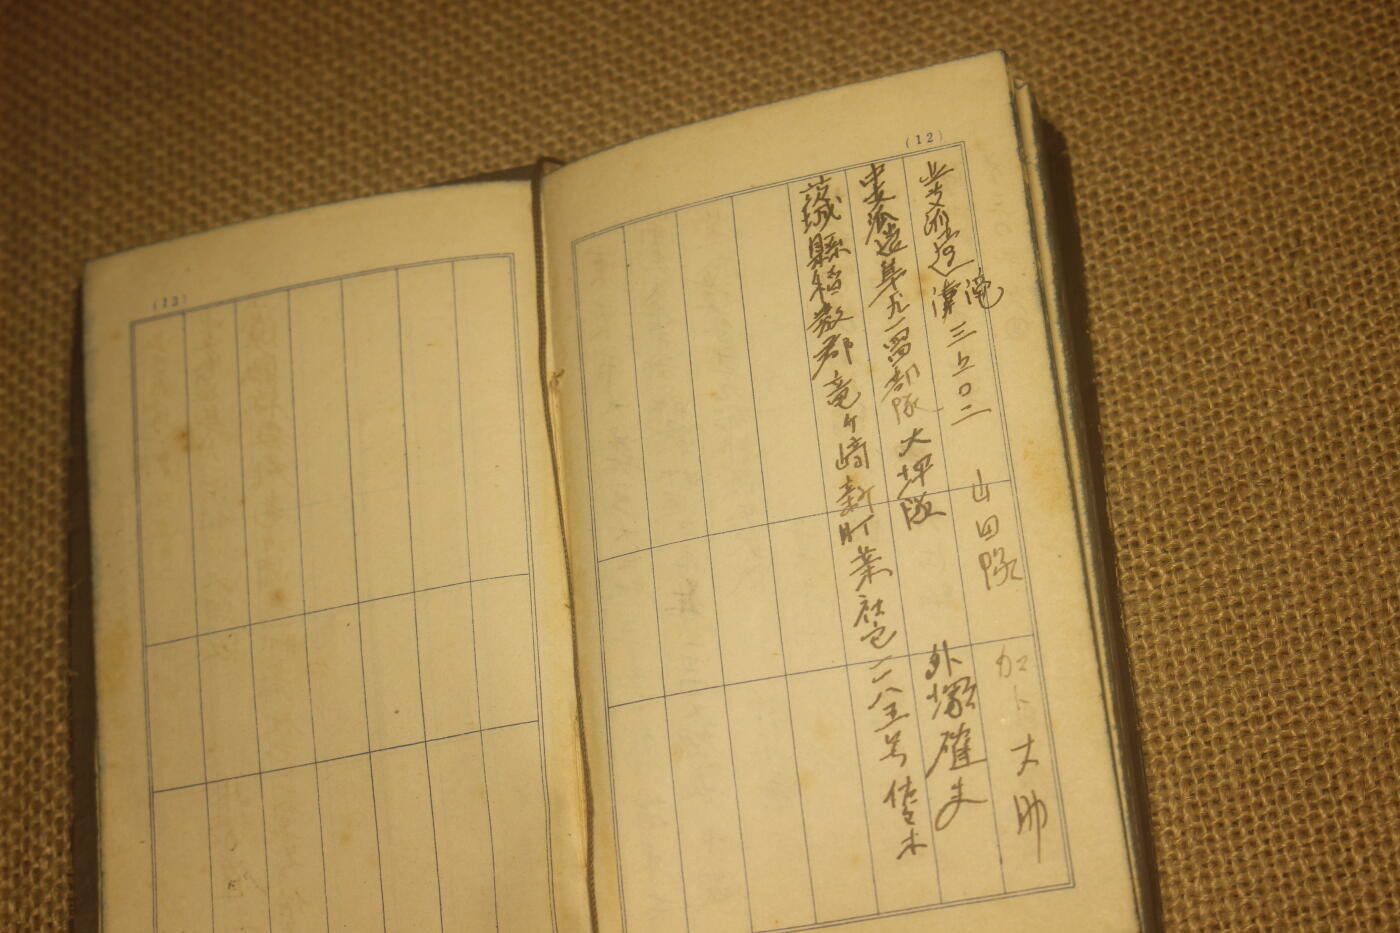 (12)
三五〇二 山田隊 加卜大助
中支派遣第九一 部隊 大坪隊 外塚 夫
茨城縣稲敷郡竜ヶ崎新町 社宅二八五号 佐々木
(13)